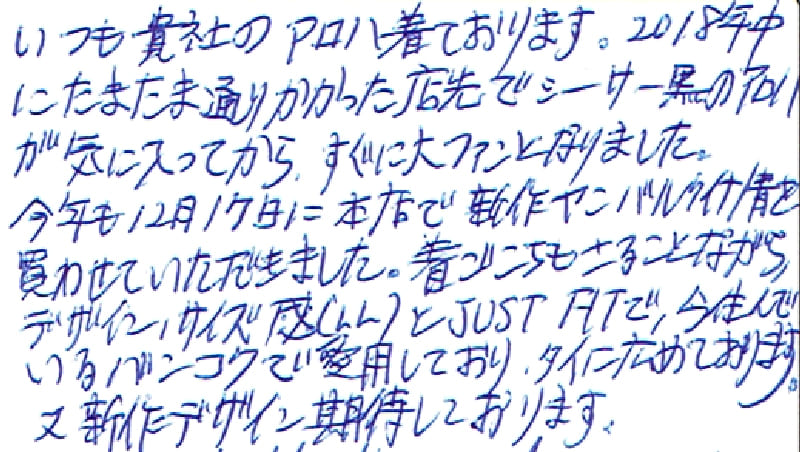 いつも貴社のアロハ着ております。2018年中
にたまたま通りかかった店先でシーサー黒のアロハ
が気に入ってから、すぐに大ファンとなりました。
今年も12月17日に本店で新作ヤンバルクイナ情を
買わせていただきました。着ごこちもさることながら、
デザイン、サイズ感(LL)とJUST FITで、今住んで
いるバンコクで愛用しており、タイに広めております。
又新作デザイン期待しております。